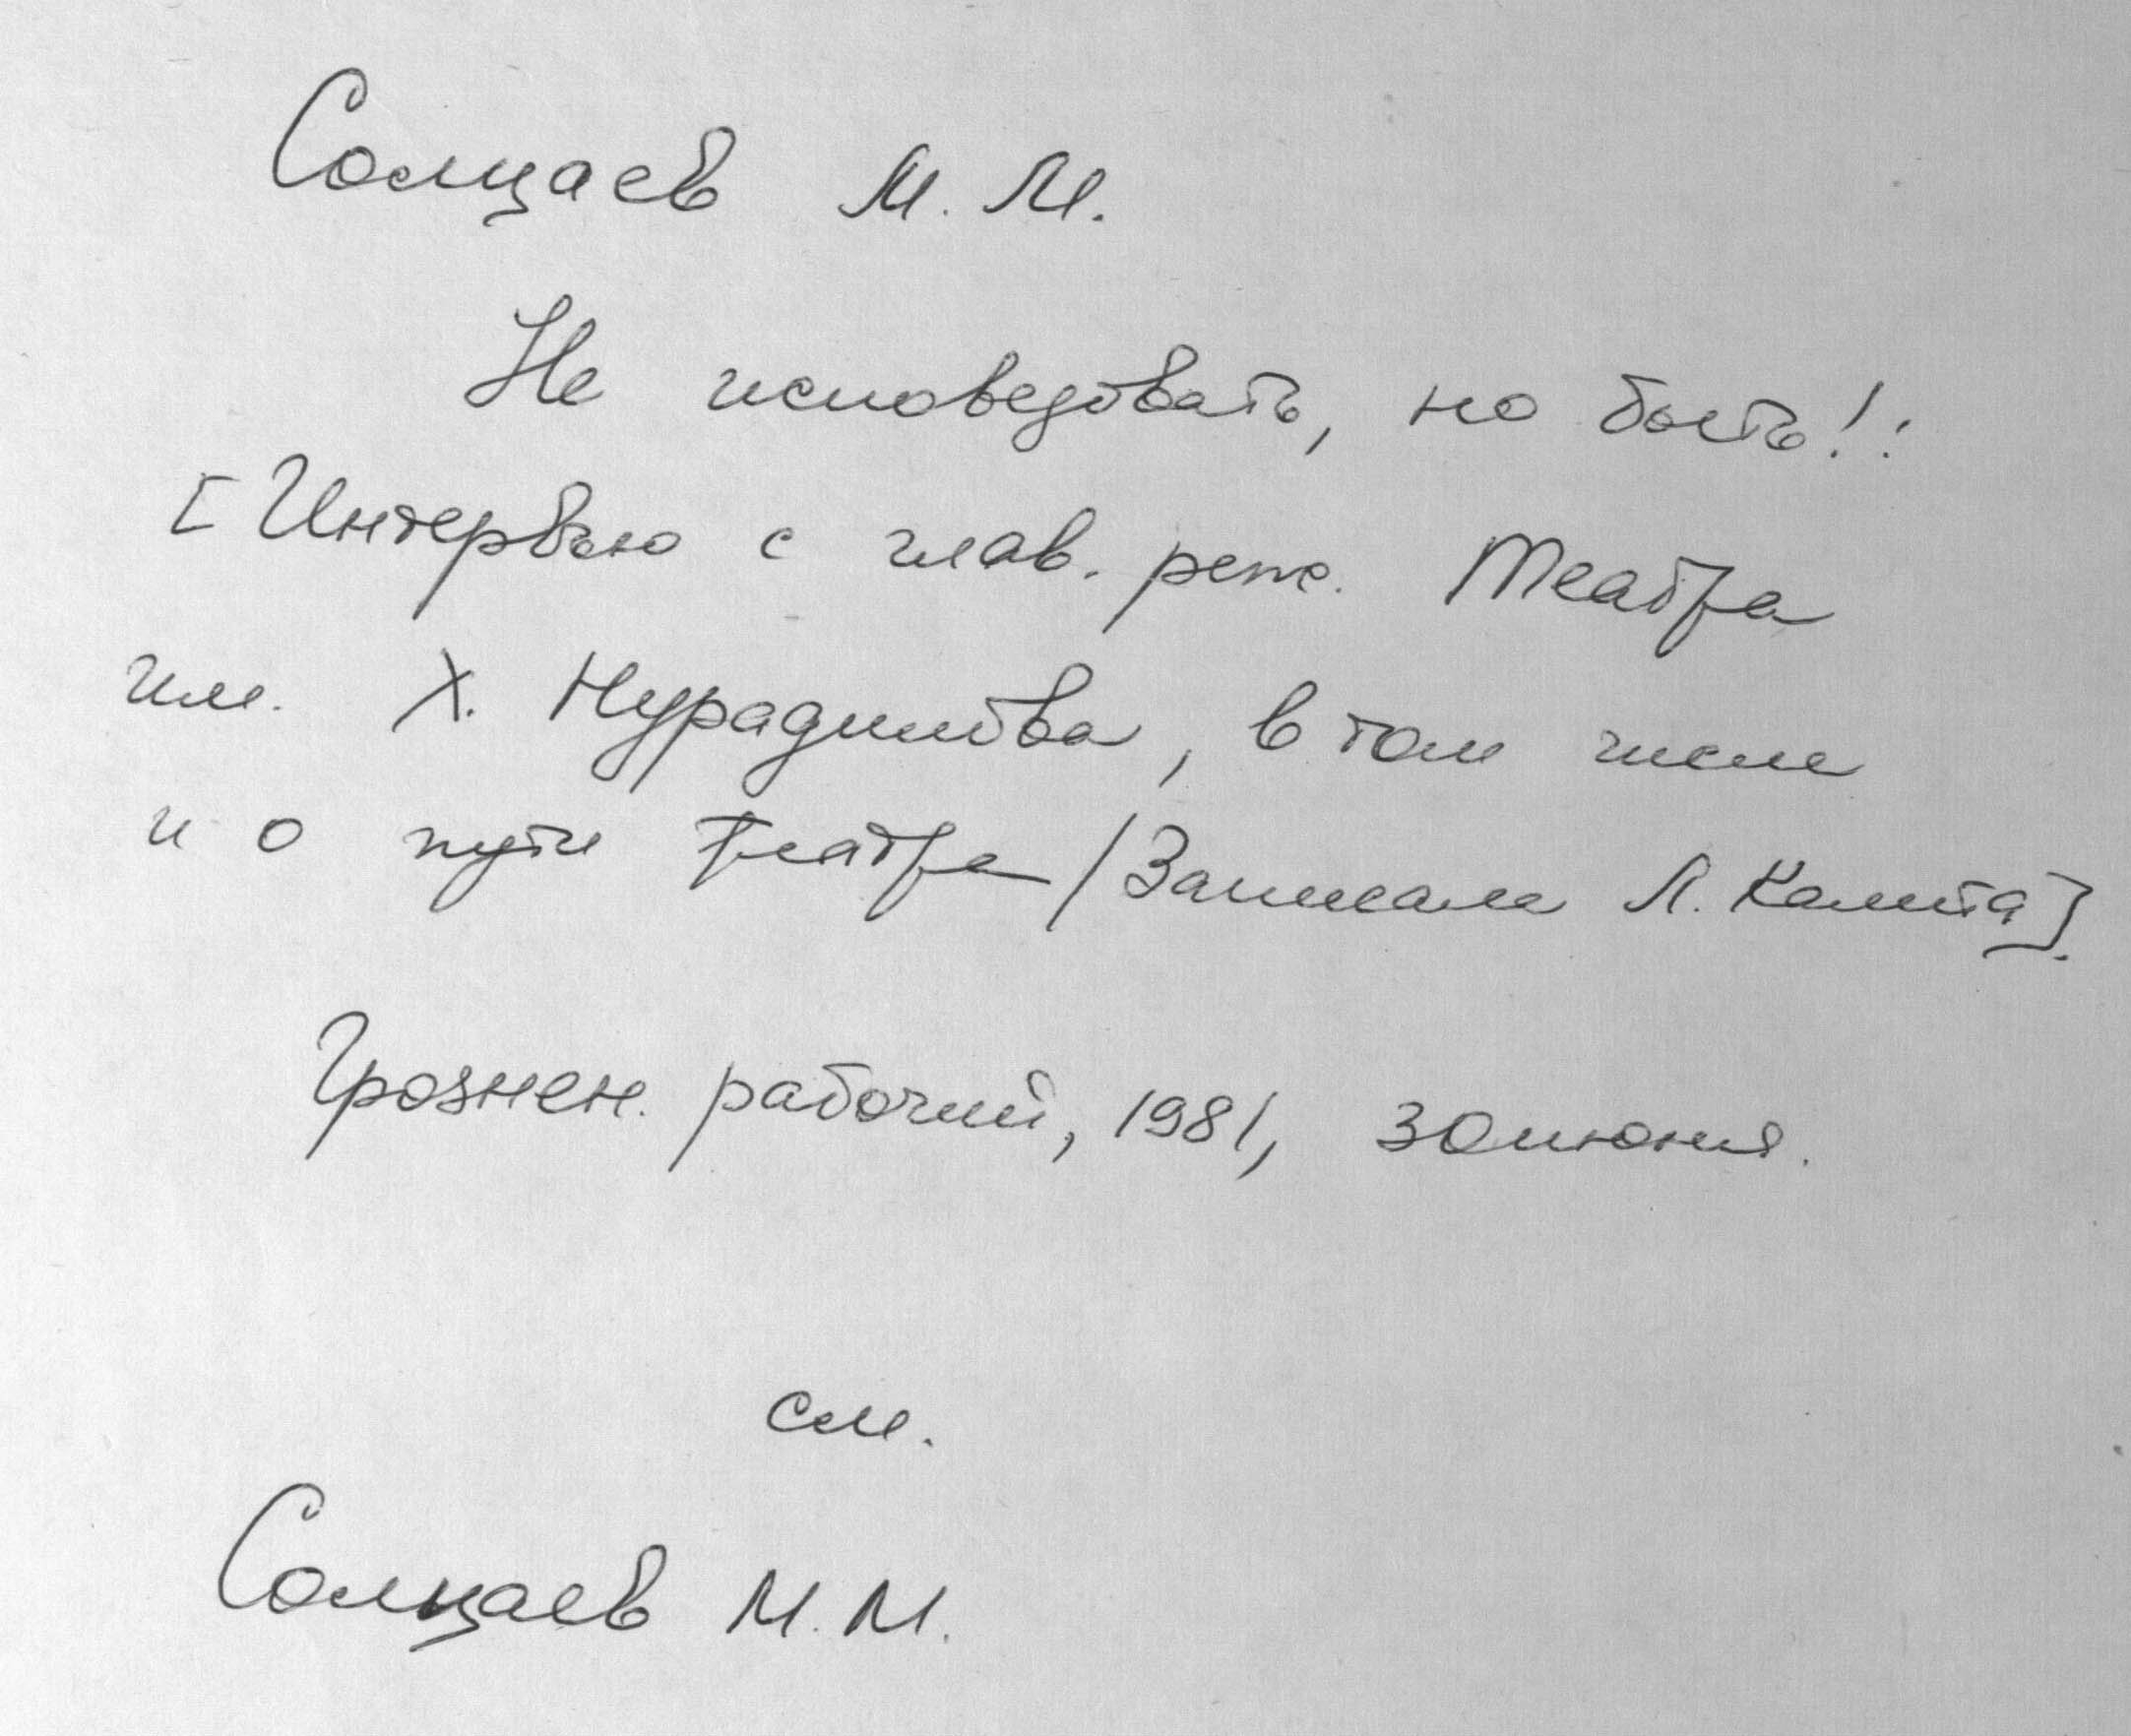 Солцаев М. М.
Не исповедовать, но быть!:
[Интервью с глав. реж. Театра
им. Х. Нурадилова, в том числе
и о пути театра / Записала Л.
Грознен. рабочий, 1981, 30 июня.
см.
Солцаев М. М.